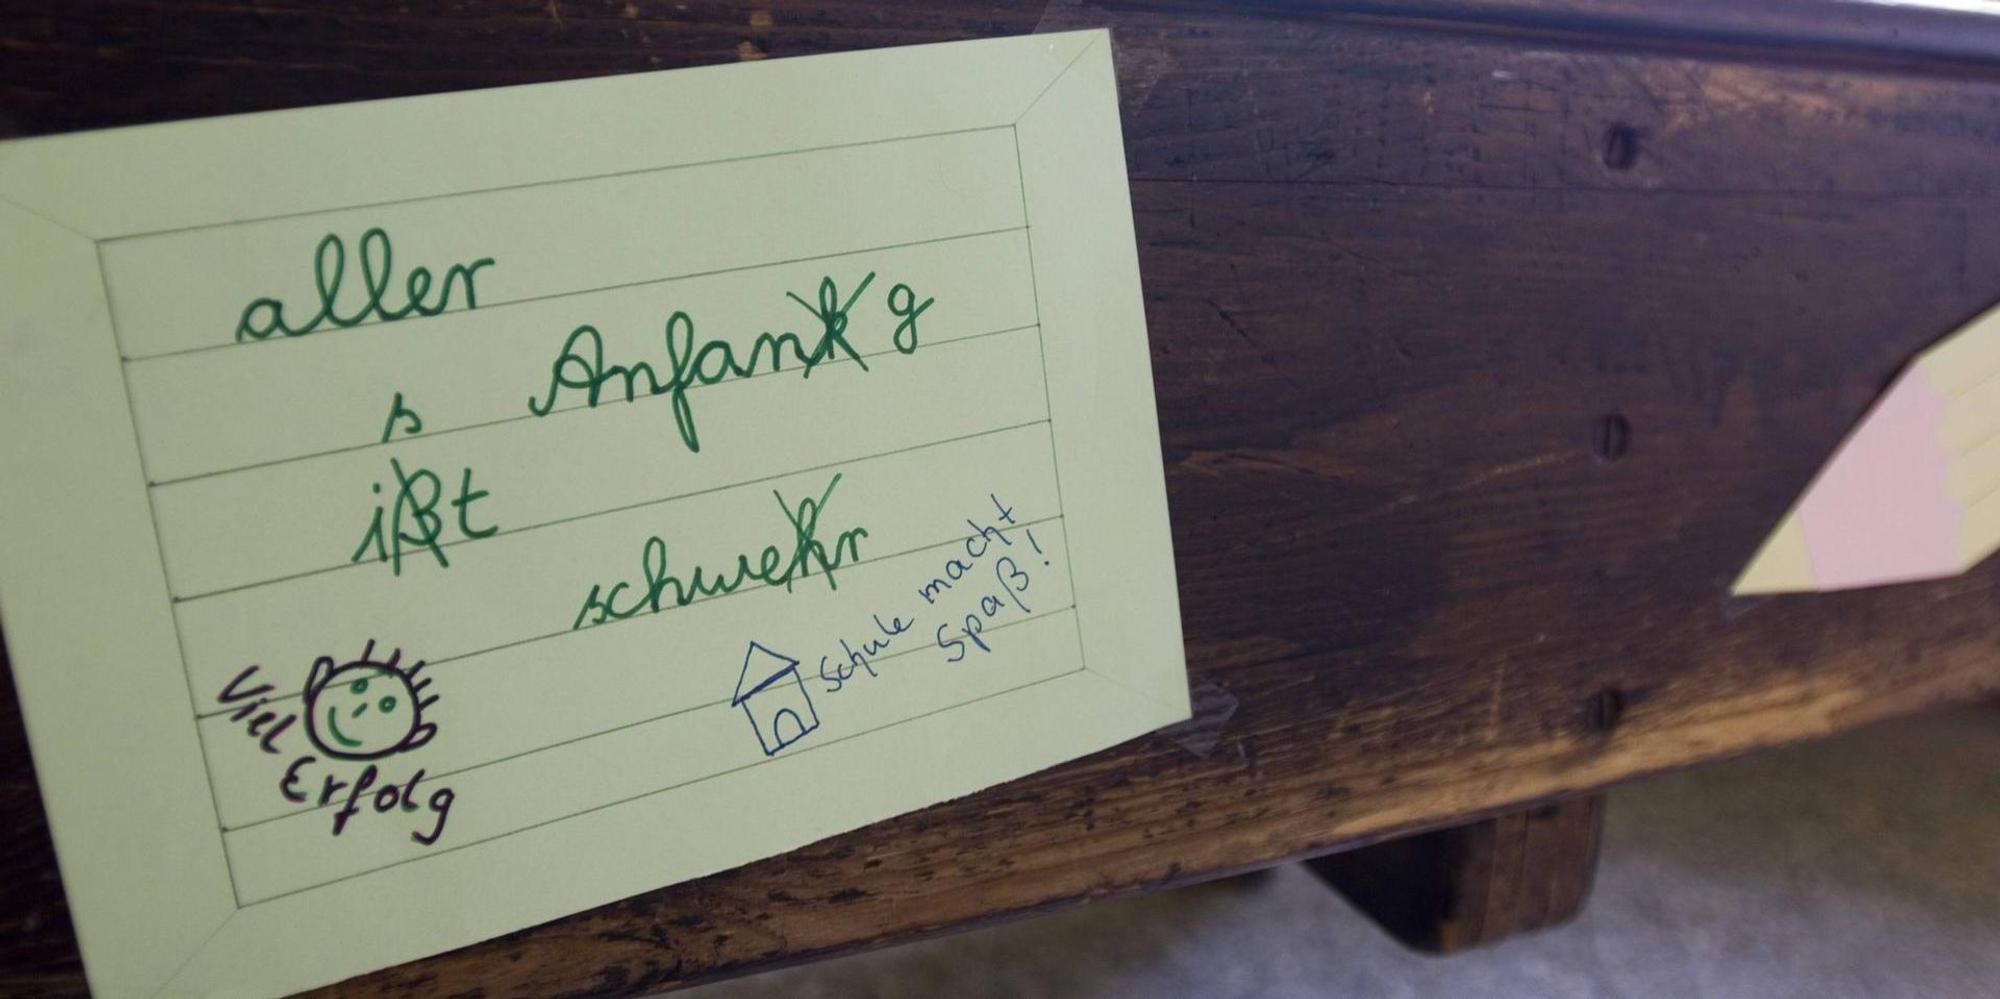 aller
Anfank g
s
ißt
schwehr
Schule macht
Spaß!
Viel
Erfolg